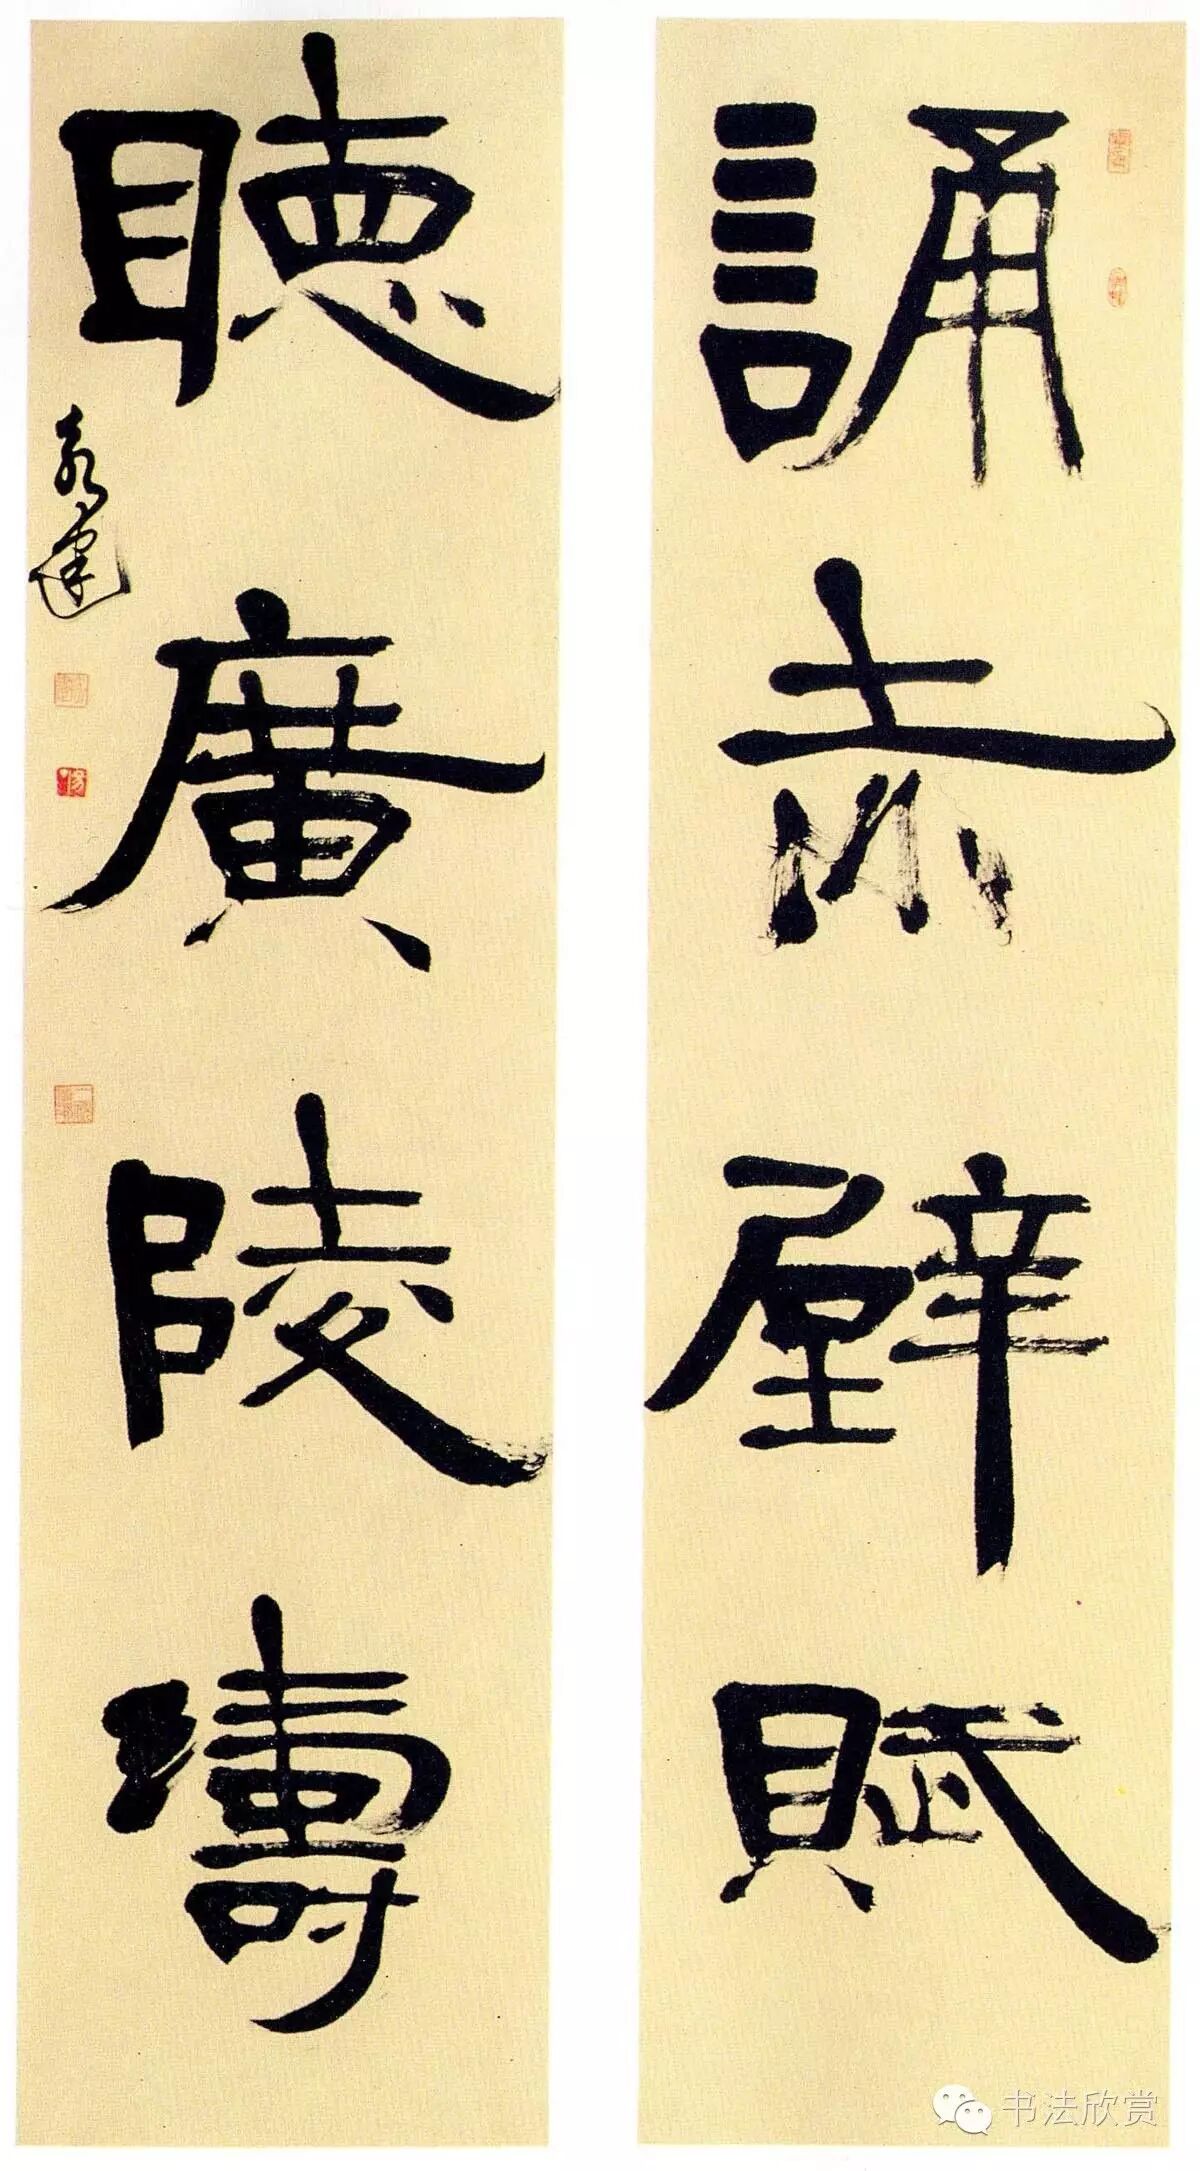 誦赤壁賦
聽廣陵濤
永建
书法欣赏